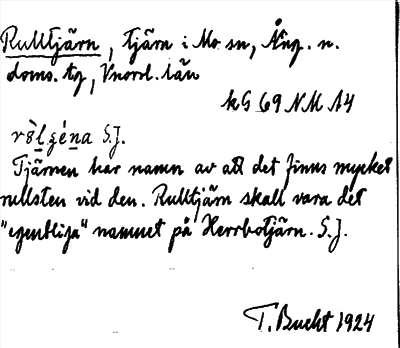 Rulltjärn, tjärn i Mo sn, Ång. n.
doms. tg, Vnorrl. län
kG 69 NM 14
S.J.
Tjärnen har namn av att det finns mycket
rullsten vid den. Rulltjärn skall vara det
"egentliga" namnet på Herrbotjärn. S.J.
T. Bucht 1924